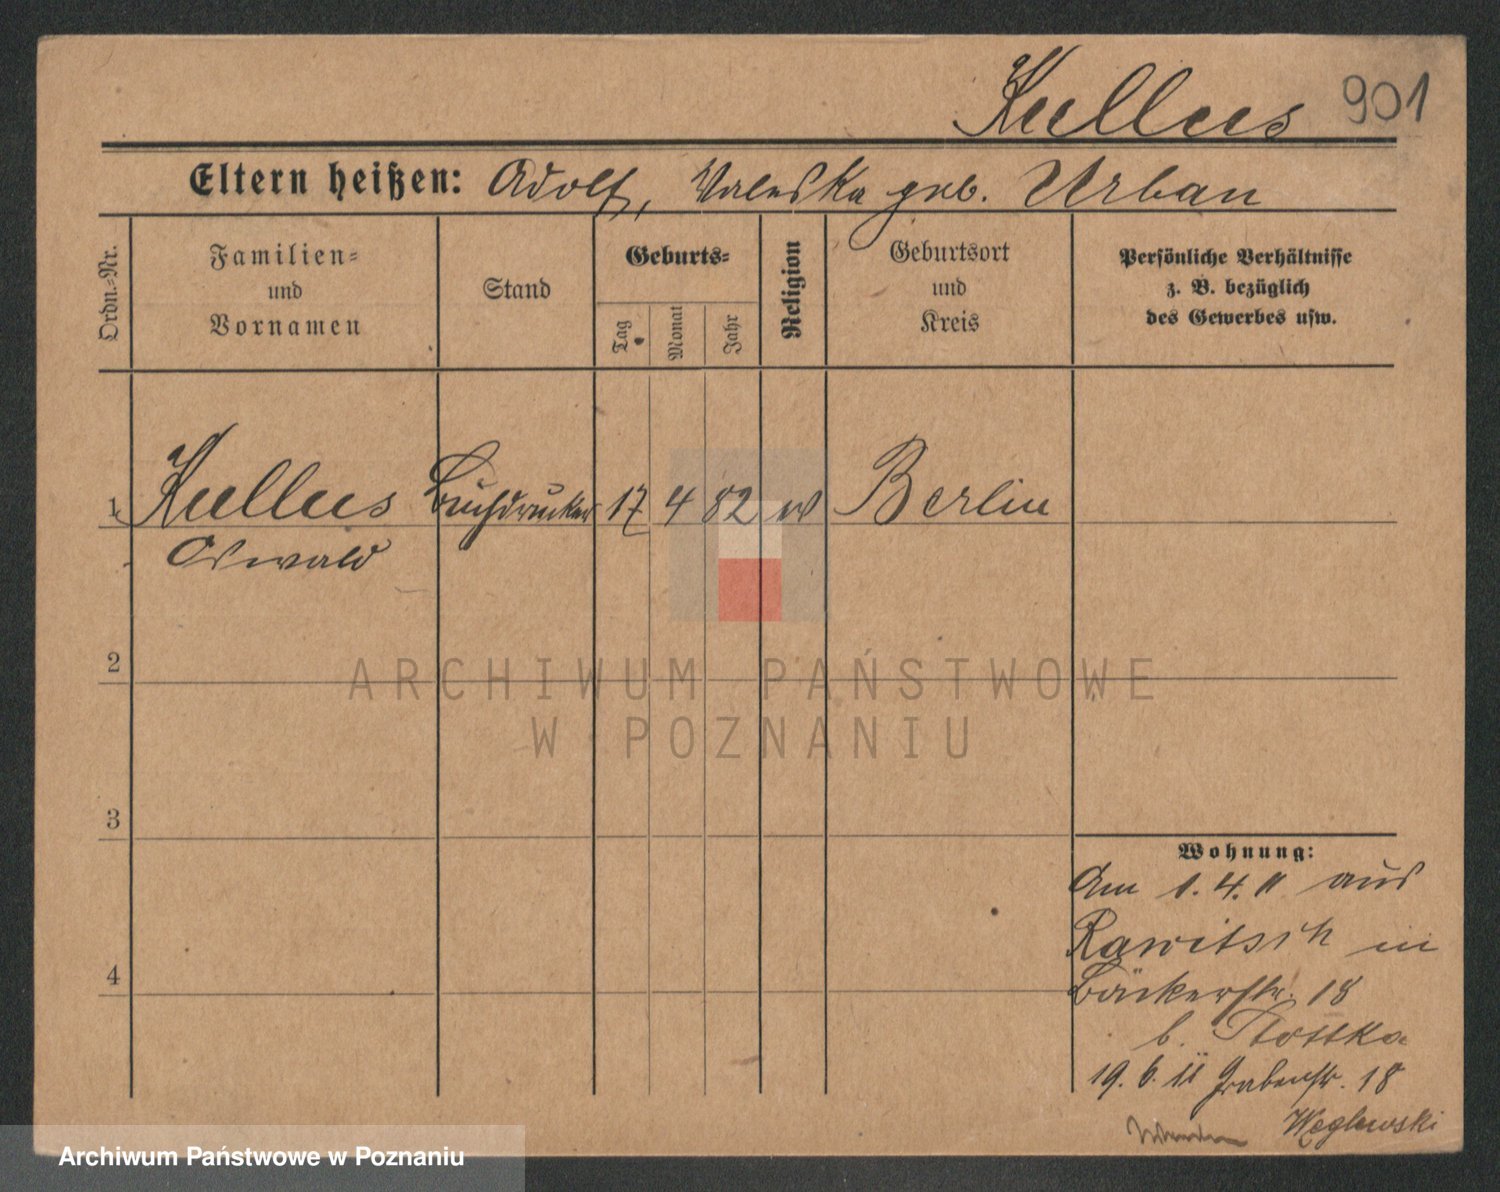 Kullus 901
Eltern heißen: Adolf, Valeska geb. Urban
Ordn.-Nr.
Familien-
und
Vornamen
Stand
Geburts-
Tag
Monat
Jahr
Religion
Geburtsort
und
Kreis
Persönliche Verhältnisse
z. B. bezüglich
des Gewerbes usw.
1 Kullus Buchdrucker 17 4 82 ev Berlin
Oswald
2
3
4
ARCHIWUM PAŃSTWOWE
W POZNANIU
Wohnung:
Am 1.4.11 aus
Rawitsch in
Bäckerstr. 18
b.
19.6.11 Grabenstr. 18
Węglewski
Archiwum Państwowe w Poznaniu